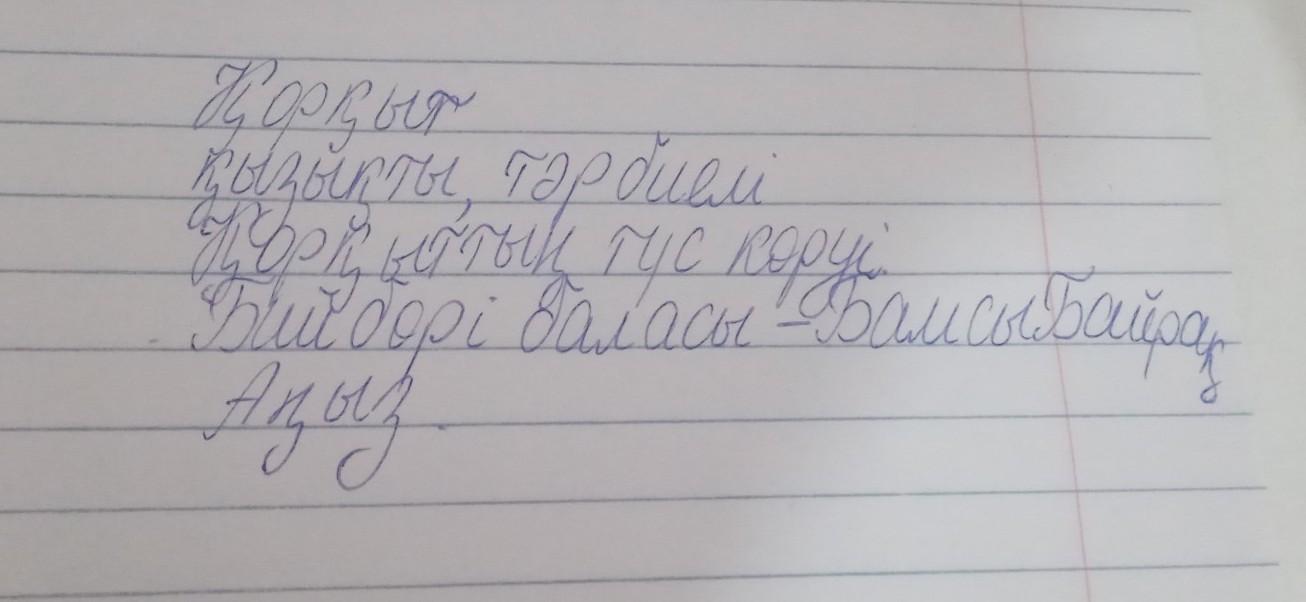 Қорқыт
қызықты, тәрбиелі
Қорқыттың түс көруі.
Бийбөрі баласы – Бамсы Байрақ
Аңыз.